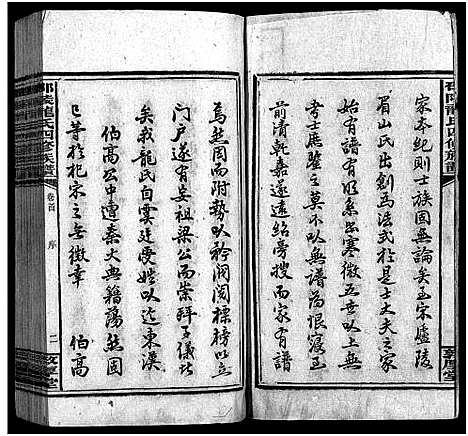 邵陵龍氏四修族譜
家本紀則士族固無論矣至宋廬陵
眉山氏出創為法式於是士大夫之家
始有譜有明系出寒微五世以上無
考士庶鑒之以無譜為恨寖至
前清乾嘉遠遠紹旁搜而家有譜
焉然因而附勢以矜閥閱標榜以立
門戶遂有妄祖梁公而崇拜子儀者
矣我龍氏自虞廷受姓以迄東漢
伯高公中遭秦火典籍蕩然固
已等於杞宋之無徵幸 伯高
邵陵龍氏四修族譜
卷首 序
二
敦厚堂